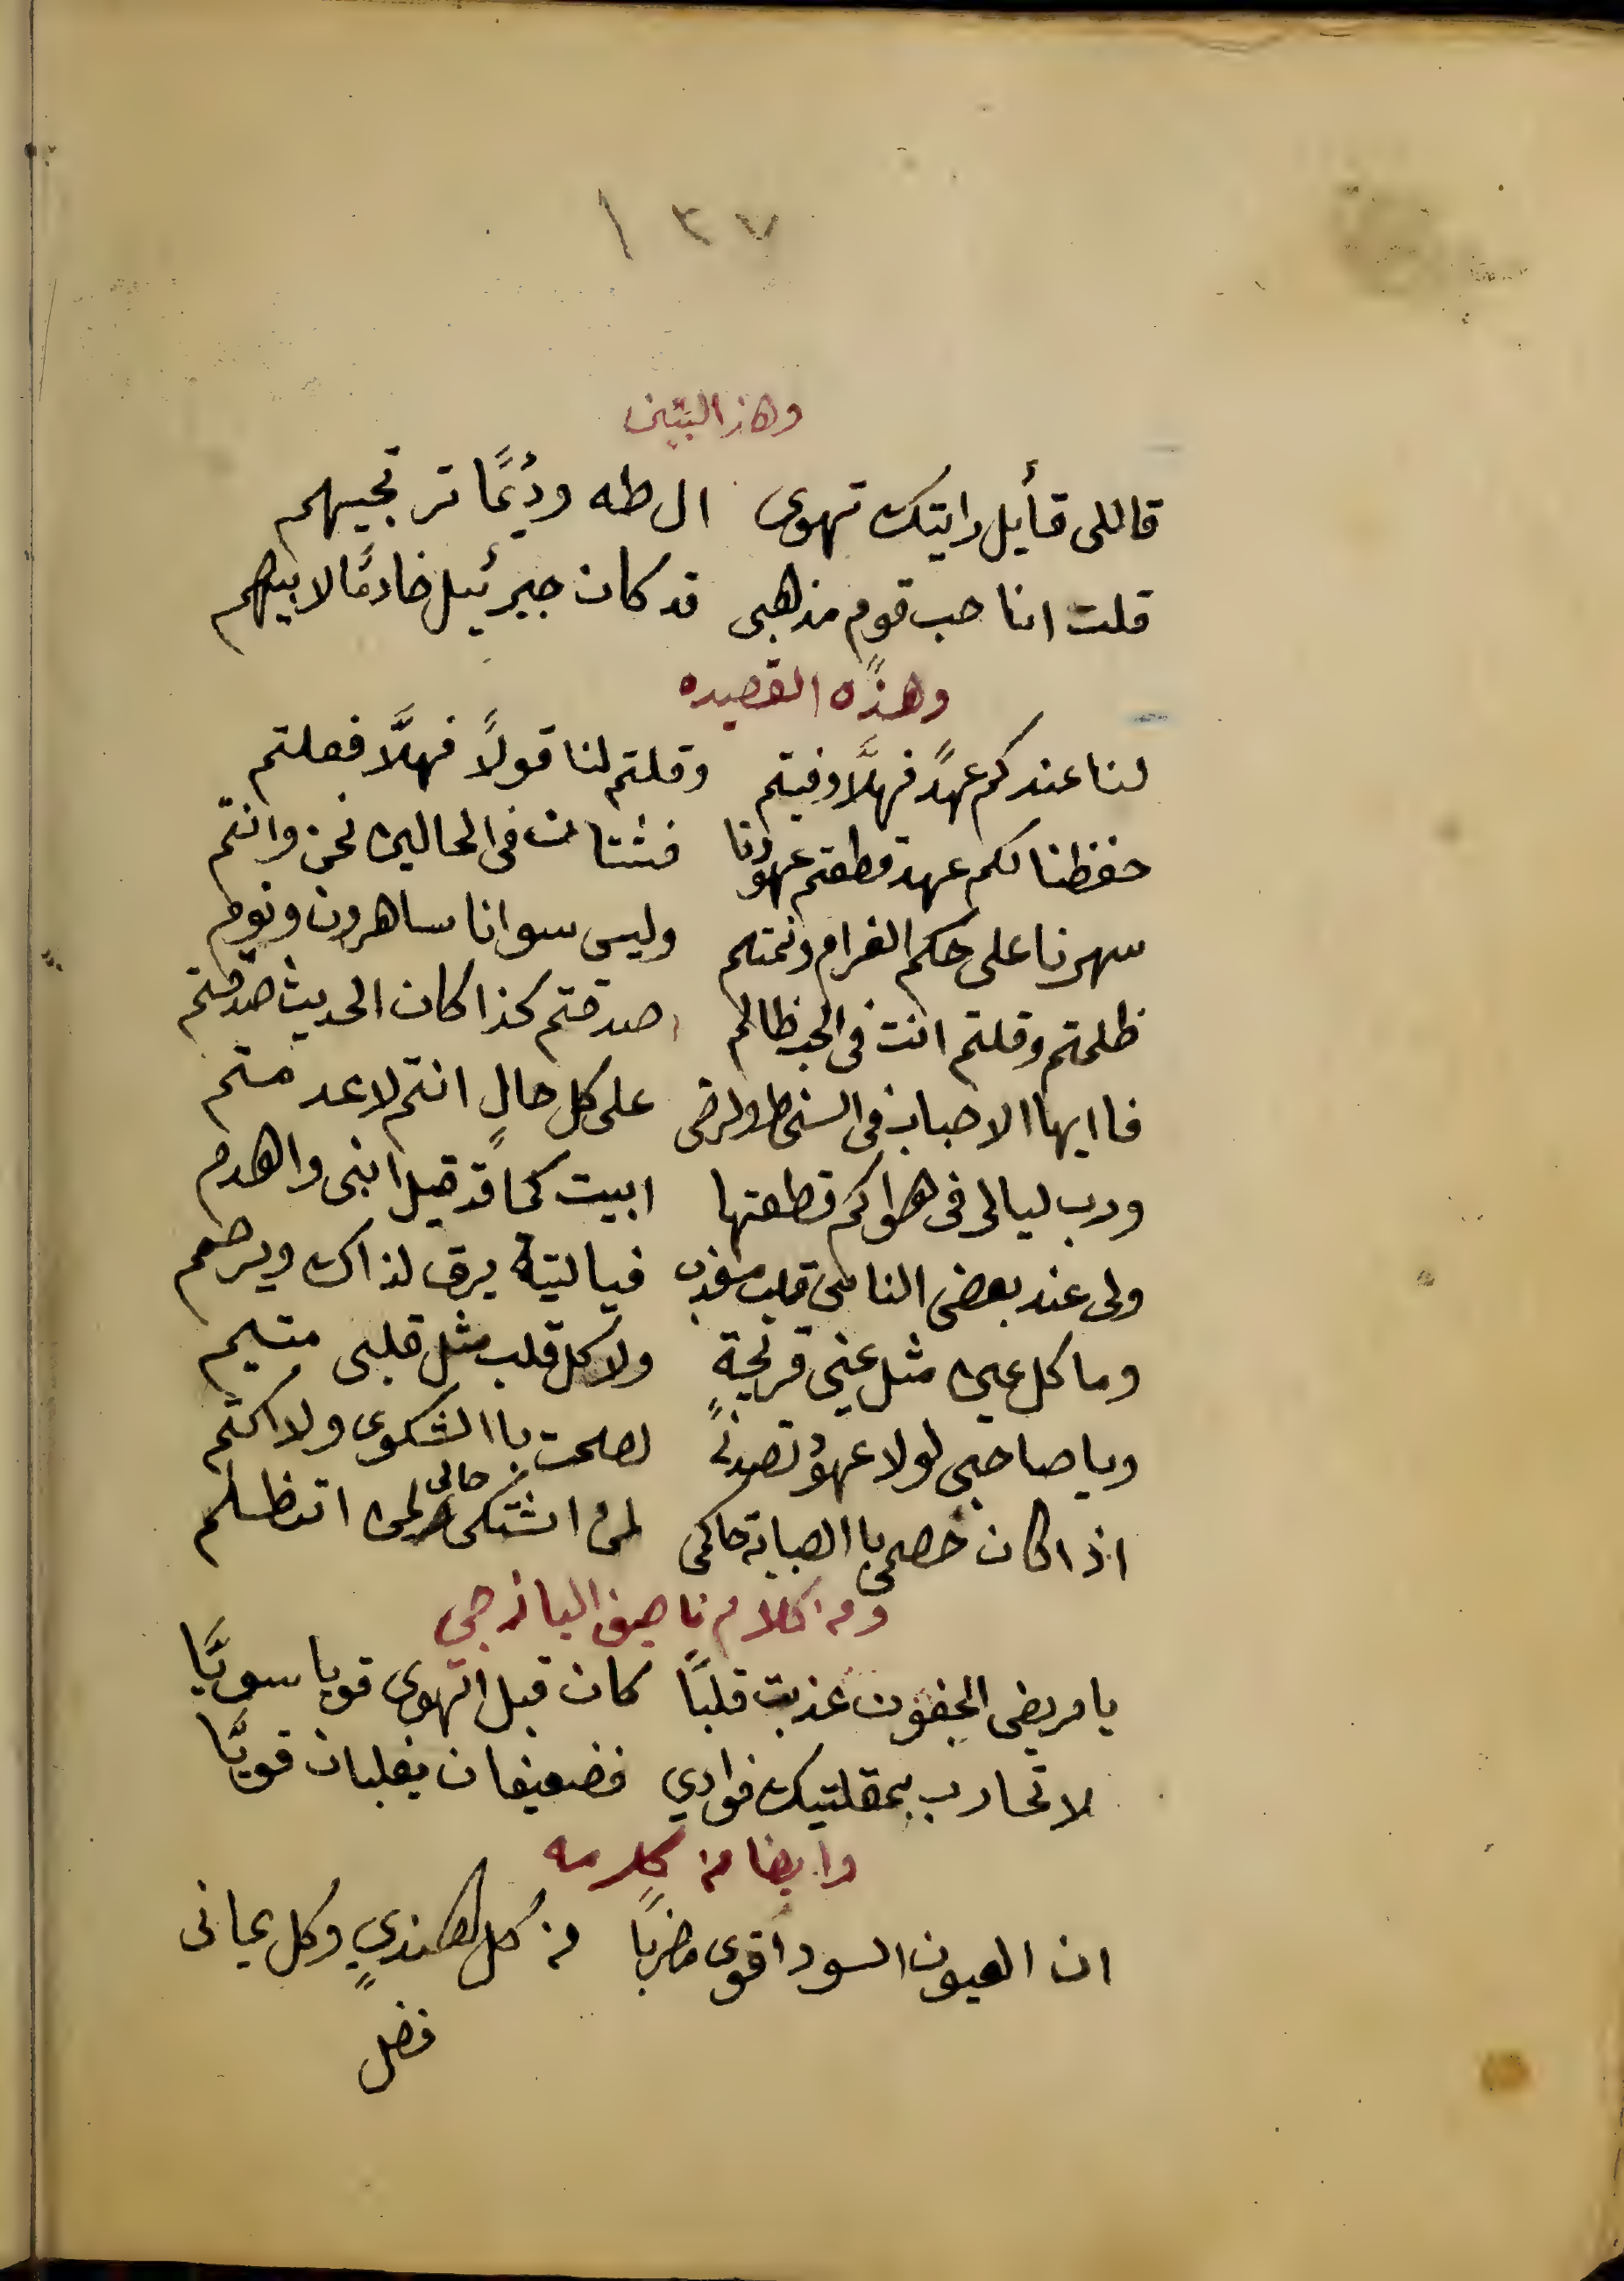 ١٣٧
وهاذ البيتين
قاللى قأيل رايتك تهوى ال طه ودئمًا ترتجيهم
قلت انا حب قوم مذهبى قد كان جبرئيل خادمًا لابيهم
وهذه القصيده
لنا عندكم عهدً فهلَّا وفيتم وقلتم لنا قولًا فهلَّا فعلتم
حفظنا لكم عهد قطعتم عهودنا فشتان فى الحالين نحن وانتم
سهرنا على حكم الغرام ونمتم وليس سوانا ساهرون ونوم
ظلمتم وقلتم انت فى الحب ظالم صدقتم كذا كان الحديث صدقتم
فاايها الاحباب فى السخط ولرضى على كل حالٍ انتم لاعدمتم
ورب ليالى فى هواكم قطعتها ابيت كماً قد قيل ابنى واهدم
ولى عند بعض الناس قلب معذب فياليته يرق لذاك ويرحم
وما كل عين مثل عينى قريحةٍ ولا كل قلب مثل قلبى متيم
ويا صاحبى لولا عهودٌ تصدنى لصحت باالشكوى ولا اكتم
اذا كان خصمى باالصبابة حاكمى لمن اشتكى حالى لمن اتظلم
ومن كلام ناصيف اليازجى
يا مريض الجفون عذبت قلبًا كان قبل الهوى قويا سويَّا
لا تحارب بمقلتيك فوادي فضعيفان يغلبان قويَّا
وايضا من كلامه
ان العيون السود اقوى مضربًا من كل هنديٍ وكل يمانى
فضل